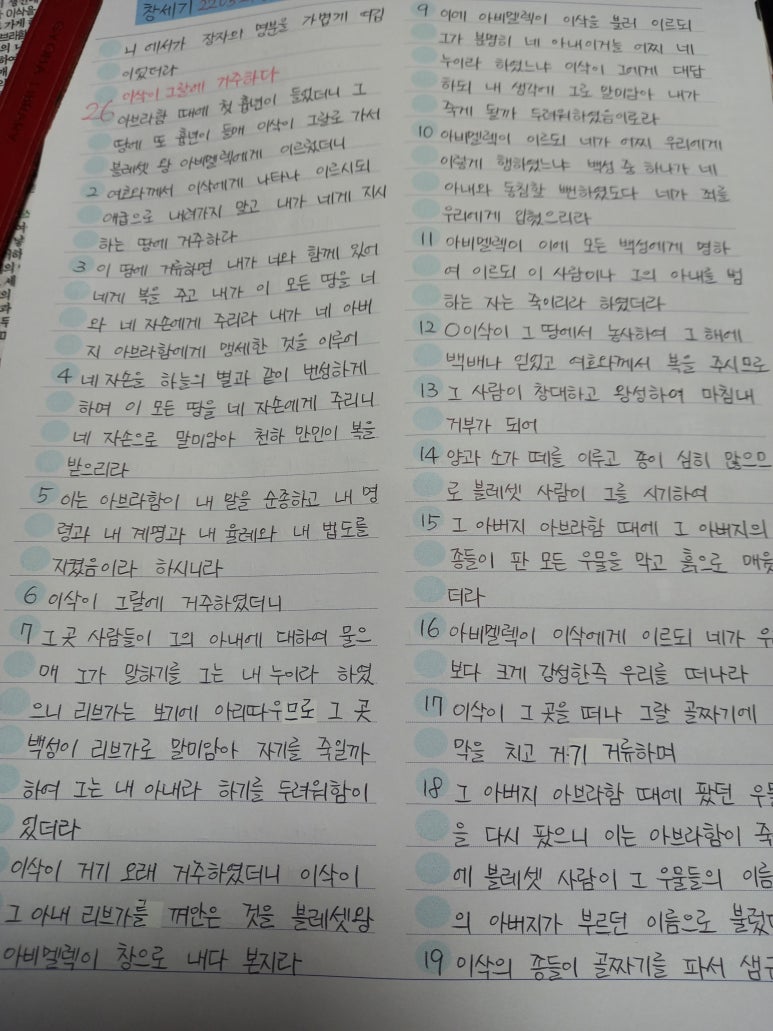 창세기
니 에서가 장자의 명분을 가볍게 여김
이었더라
이삭이 그랄에 거주하다
26 아브라함 때에 첫 흉년이 들었더니 그
땅에 또 흉년이 들매 이삭이 그랄로 가서
블레셋 왕 아비멜렉에게 이르렀더니
2 여호와께서 이삭에게 나타나 이르시되
애굽으로 내려가지 말고 내가 네게 지시
하는 땅에 거주하라
3 이 땅에 거류하면 내가 너와 함께 있어
네게 복을 주고 내가 이 모든 땅을 너
와 네 자손에게 주리라 내가 네 아버
지 아브라함에게 맹세한 것을 이루어
4 네 자손을 하늘의 별과 같이 번성하게
하며 이 모든 땅을 네 자손에게 주리니
네 자손으로 말미암아 천하 만인이 복을
받으리라
5 이는 아브라함이 내 말을 순종하고 내 명
령과 내 계명과 내 율례와 내 법도를
지켰음이라 하시니라
6 이삭이 그랄에 거주하였더니
7 그 곳 사람들이 그의 아내에 대하여 물으
매 그가 말하기를 그는 내 누이라 하였
으니 리브가는 보기에 아리따우므로 그 곳
백성이 리브가로 말미암아 자기를 죽일까
하여 그는 내 아내라 하기를 두려워함이
있더라
이삭이 거기 오래 거주하였더니 이삭이
그 아내 리브가를 껴안은 것을 블레셋왕
아비멜렉이 창으로 내다 본지라
9 이에 아비멜렉이 이삭을 불러 이르되
그가 분명히 네 아내이거늘 어찌 네
누이라 하였느냐 이삭이 그에게 대답
하되 내 생각에 그로 말미암아 내가
죽게 될까 두려워하였음이로라
10 아비멜렉이 이르되 네가 어찌 우리에게
이렇게 행하였느냐 백성 중 하나가 네
아내와 동침할 뻔하였도다 네가 죄를
우리에게 입혔으리라
11 아비멜렉이 이에 모든 백성에게 명하
여 이르되 이 사람이나 그의 아내를 범
하는 자는 죽이리라 하였더라
12 ○이삭이 그 땅에서 농사하여 그 해에
백배나 얻었고 여호와께서 복을 주시므로
13 그 사람이 창대하고 왕성하여 마침내
거부가 되어
14 양과 소가 떼를 이루고 종이 심히 많으므
로 블레셋 사람이 그를 시기하여
15 그 아버지 아브라함 때에 그 아버지의
종들이 판 모든 우물을 막고 흙으로 메웠
더라
16 아비멜렉이 이삭에게 이르되 네가 우
보다 크게 강성한즉 우리를 떠나라
17 이삭이 그 곳을 떠나 그랄 골짜기에
막을 치고 거기 거류하며
18 그 아버지 아브라함 때에 팠던 우물
을 다시 팠으니 이는 아브라함이 죽
에 블레셋 사람이 그 우물들의 이름
의 아버지가 부르던 이름으로 불렀더
19 이삭의 종들이 골짜기를 파서 샘